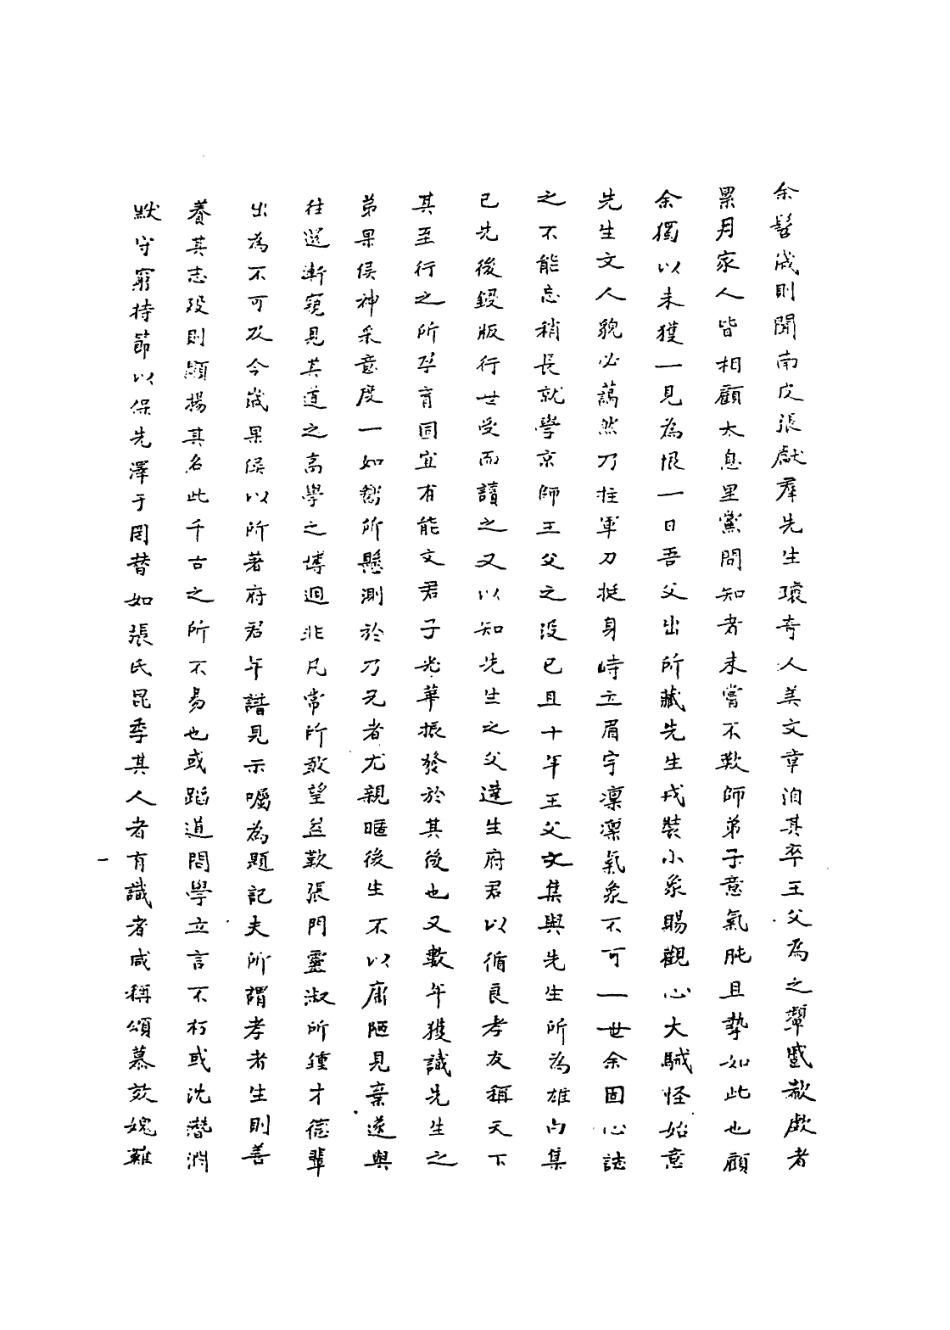 余髫歲則聞南皮張獻羣先生瓌奇人美文章洎其卒王父為之顰蹙欷歔者
累月家人皆相顧太息里黨問知者未嘗不歎師弟子意氣肫且摯如此也顧
余獨以未獲一見為恨一日吾父出所藏先生戎裝小象賜觀心大駴怪始意
先生文人貌必藹然乃拄軍刀挺身峙立眉宇凜凜氣象不可一世余固心誌
之不能忘稍長就學京師王父之沒已且十年王父文集與先生所為雄白集
已先後鋟版行世受而讀之又以知先生之父達生府君以循良孝友稱天下
其至行之所孕育固宜有能文君子光華振發於其後也又數年獲識先生之
弟果侯神采意度一如嚮所懸測於乃兄者尤親暱後生不以庸陋見棄遂與
往還漸窺見其道之高學之博迴非凡常所敢望益歎張門靈淑所鍾才德輩
出為不可及今歲果侯以所著府君年譜見示囑為題記夫所謂孝者生則善
養其志歿則顯揚其名此千古之所不易也或蹈道問學立言不朽或沈潛淵
默守窮持節以保先澤于罔替如張氏昆季其人者有識者咸稱頌慕效媿難
一